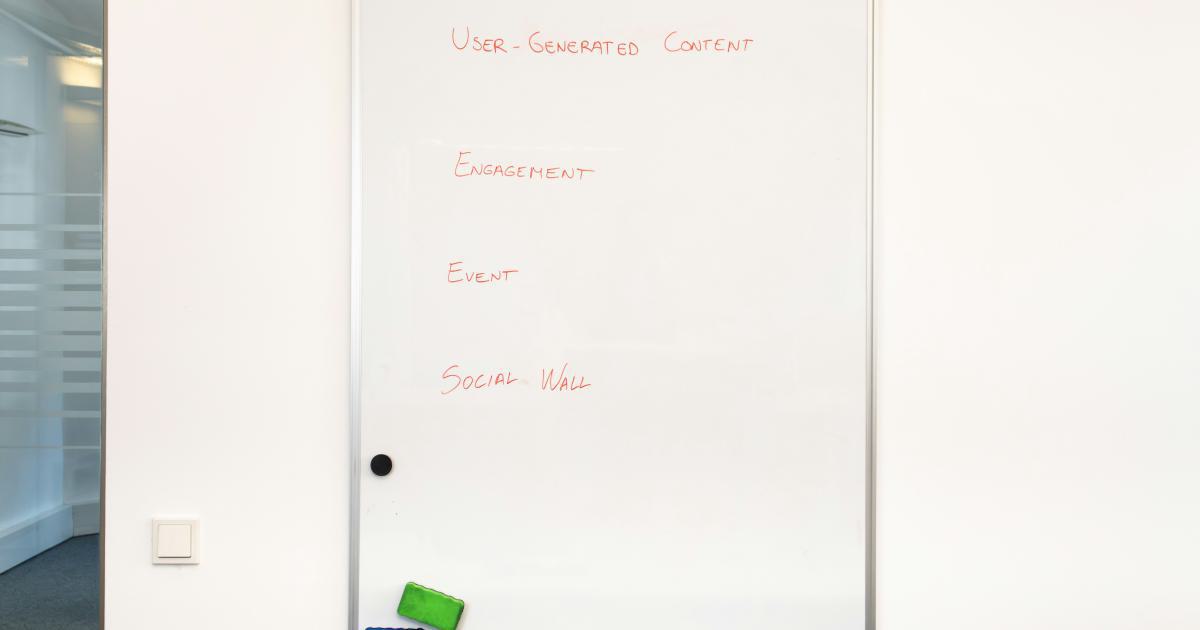 USER-GENERATED CONTENT
ENGAGEMENT
EVENT
SOCIAL WALL